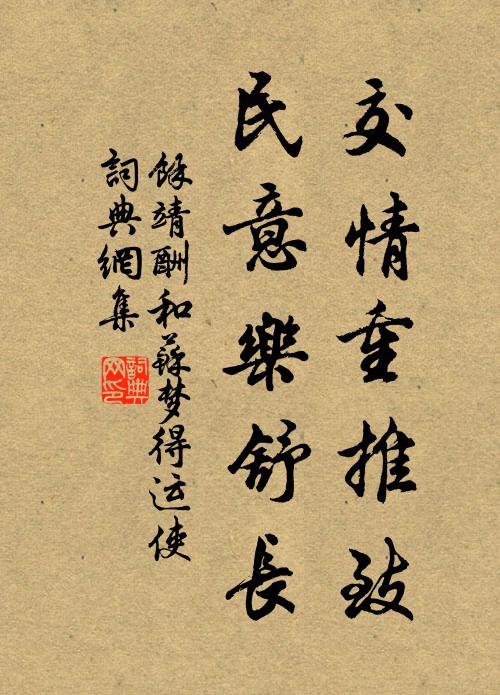 交情重推致
民意樂舒長
餘靖酬和蘇梦得运使
詞典網集
詞典网印